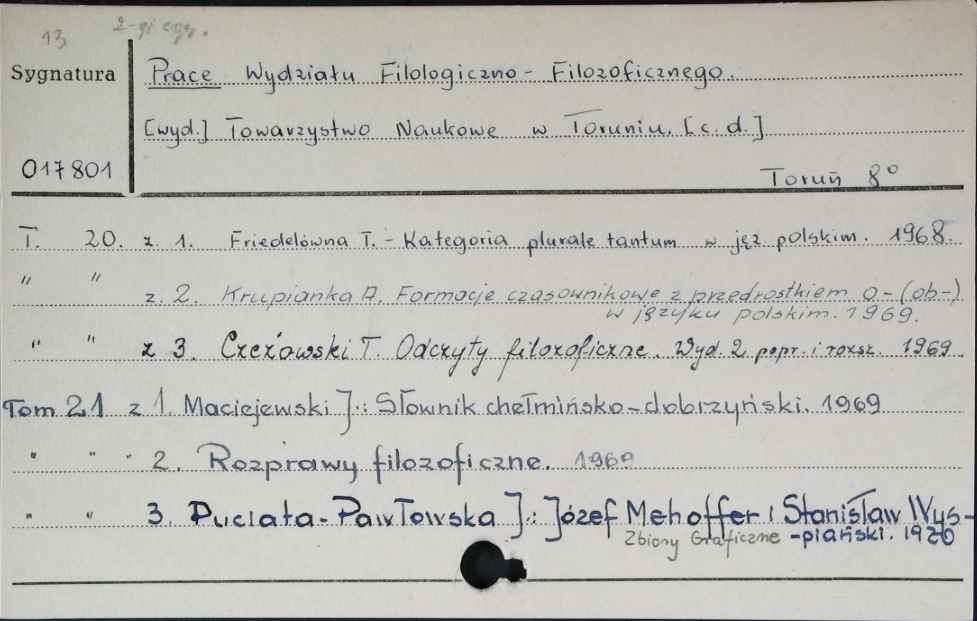 13 2-gi egz.
Sygnatura
017801
Prace Wydziału Filologiczno-Filozoficznego.
[wyd.] Towarzystwo Naukowe w Toruniu. [c.d.]
Toruń 8°
T. 20. z. 1. Friedelówna T. - Kategoria plurale tantum w jęz. polskim. 1968.
" " z. 2. Krupianka A. Formacje czasownikowe z przedrostkiem o-(ob-)
w języku polskim. 1969.
" " z 3. Czeżowski T. Odczyty filozoficzne. Wyd. 2 popr. i rozsz. 1969.
Tom 21 z 1. Maciejewski J.: Słownik chełmińsko-dobrzyński. 1969
" " " 2. Rozprawy filozoficzne. 1969
" " 3. Puciata-Pawłowska J.: Józef Mehoffer i Stanisław Wys-
Zbiory Graficzne -piański. 1970